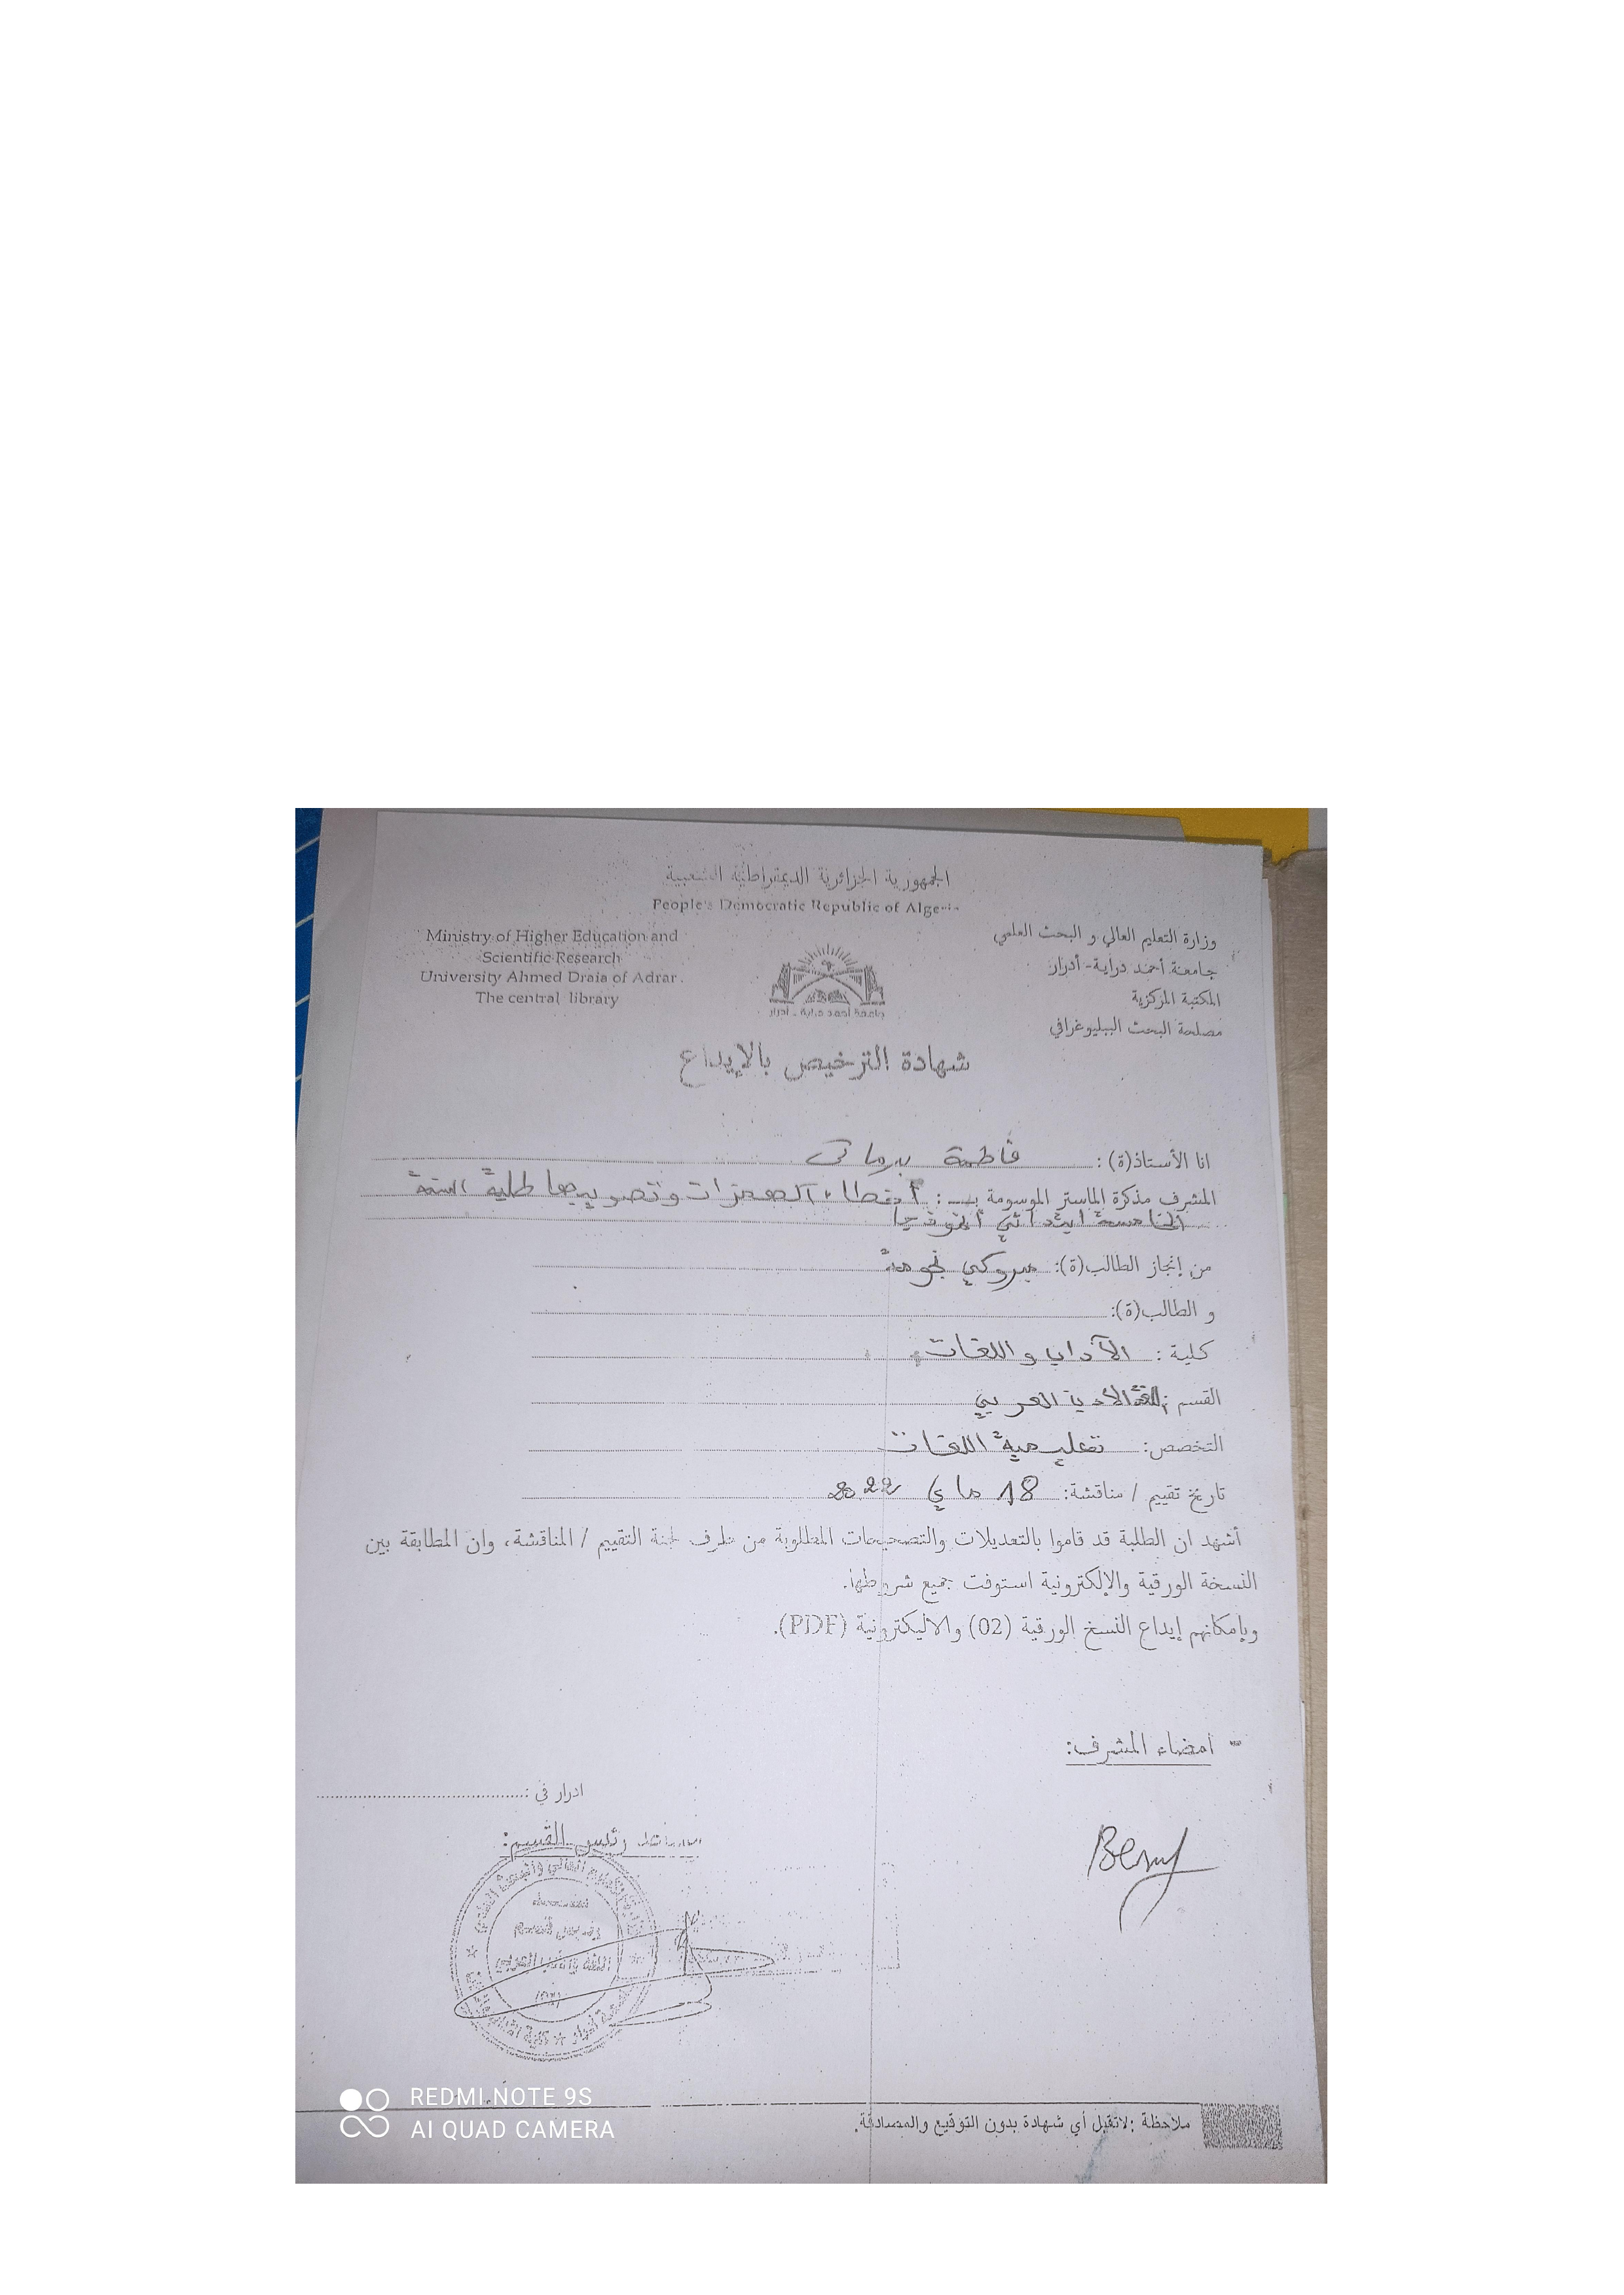 الجمهورية الجزائرية الديمقراطية الشعبية
People's Democratic Republic of Algeria
وزارة التعليم العالي و البحث العلمي
جامعة أحمد دراية- أدرار
المكتبة المركزية
مصلحة البحث الببليوغرافي
Ministry of Higher Education and
Scientific Research
University Ahmed Draia of Adrar.
The central library
جامعة أحمد دراية - أدرار
شهادة الترخيص بالإيداع
انا الأستاذ(ة): فاطمة برماتي
المشرف مذكرة الماستر الموسومة بـــ: أخطاء الهمزات وتصويبها طلبة السنة
الخامسة ابتدائي أنموذجا
من إنجاز الطالب(ة): مبروكي نجومة
و الطالب(ة):
كلية: الآداب و اللغات
القسم: الأدب العربي
التخصص: تعليمية اللغات
تاريخ تقييم / مناقشة: 18 ماي 2022
أشهد ان الطلبة قد قاموا بالتعديلات والتصحيحات المطلوبة من طرف لجنة التقييم / المناقشة، وان المطابقة بين
النسخة الورقية والإلكترونية استوفت جميع شروطها.
وبإمكانهم إيداع النسخ الورقية (02) والاليكترونية (PDF).
- امضاء المشرف:
ادرار في:
رئيس القسم:
رئيس قسم
اللغة والأدب العربي
REDMI NOTE 9S
AI QUAD CAMERA
ملاحظة: لاتقبل أي شهادة بدون التوقيع والمصادقة.